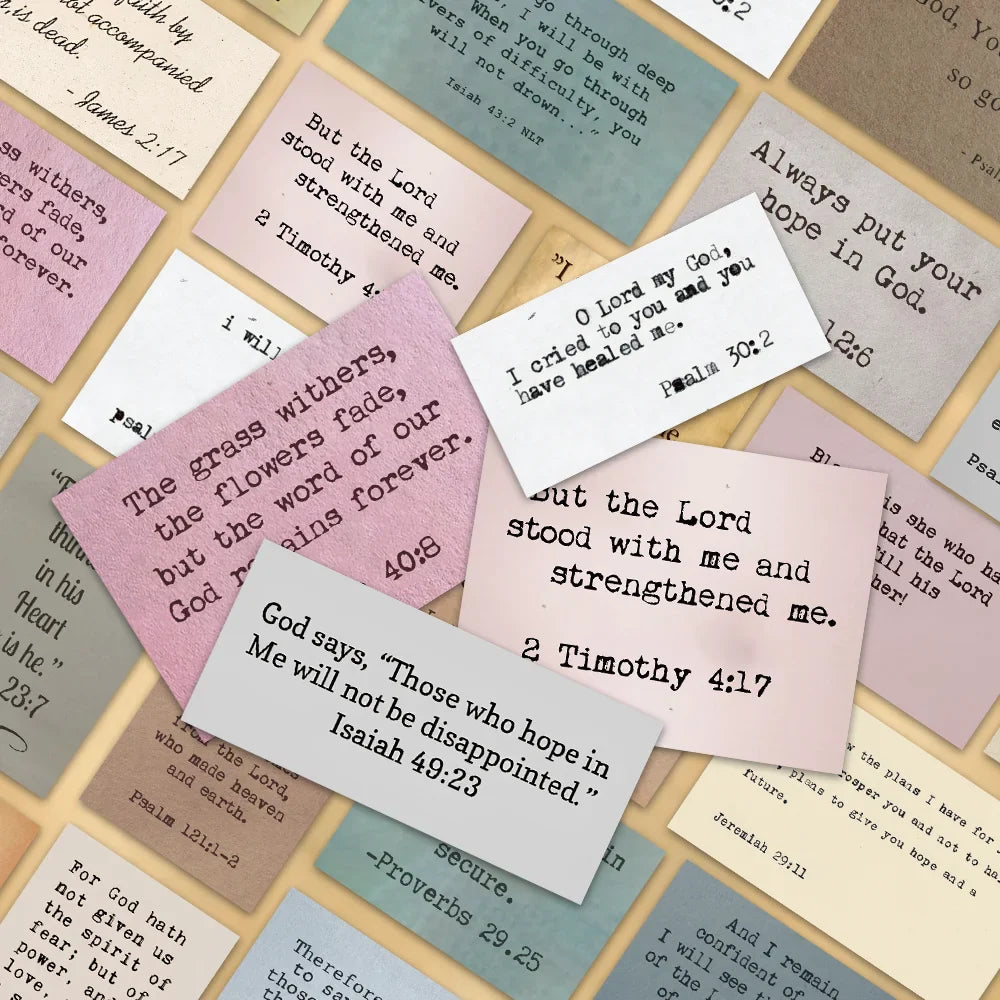 faith by
not accompanied
is dead.
- James 2:17
go through deep
, I will be with
When you go through
vers of difficulty, you
will not drown..."
Isiah 43:2 NLT
:2
God, Yo
so go
- Psal
withers,
ers fade,
rd of our
forever.
But the Lord
stood with me and
strengthened me.
2 Timothy 4:
Always put your
hope in God.
12:6
i will
psal
"I
O Lord my God,
I cried to you and you
have healed me.
Psalm 30:2
The grass withers,
the flowers fade,
but the word of our
God r ains forever.
40:8
But the Lord
stood with me and
strengthened me.
2 Timothy 4:17
God says, “Those who hope in
Me will not be disappointed.”
Isaiah 49:23
in his
Heart
is he.”
23:7
Bl
is she who ha
hat the Lord
ill his
her!
Psa
from the Lord,
who made heaven
and earth.
Psalm 121:1-2
in
secure.
-Proverbs 29.25
w the plans I have for
rosper you and not to ha
, plans to give you hope and a
future.
Jeremiah 29:11
For God hath
not given us
the spirit of
fear; but of
power, and
love,
Therefore
to say
those
And I remain
confident of
I will see th
of the L